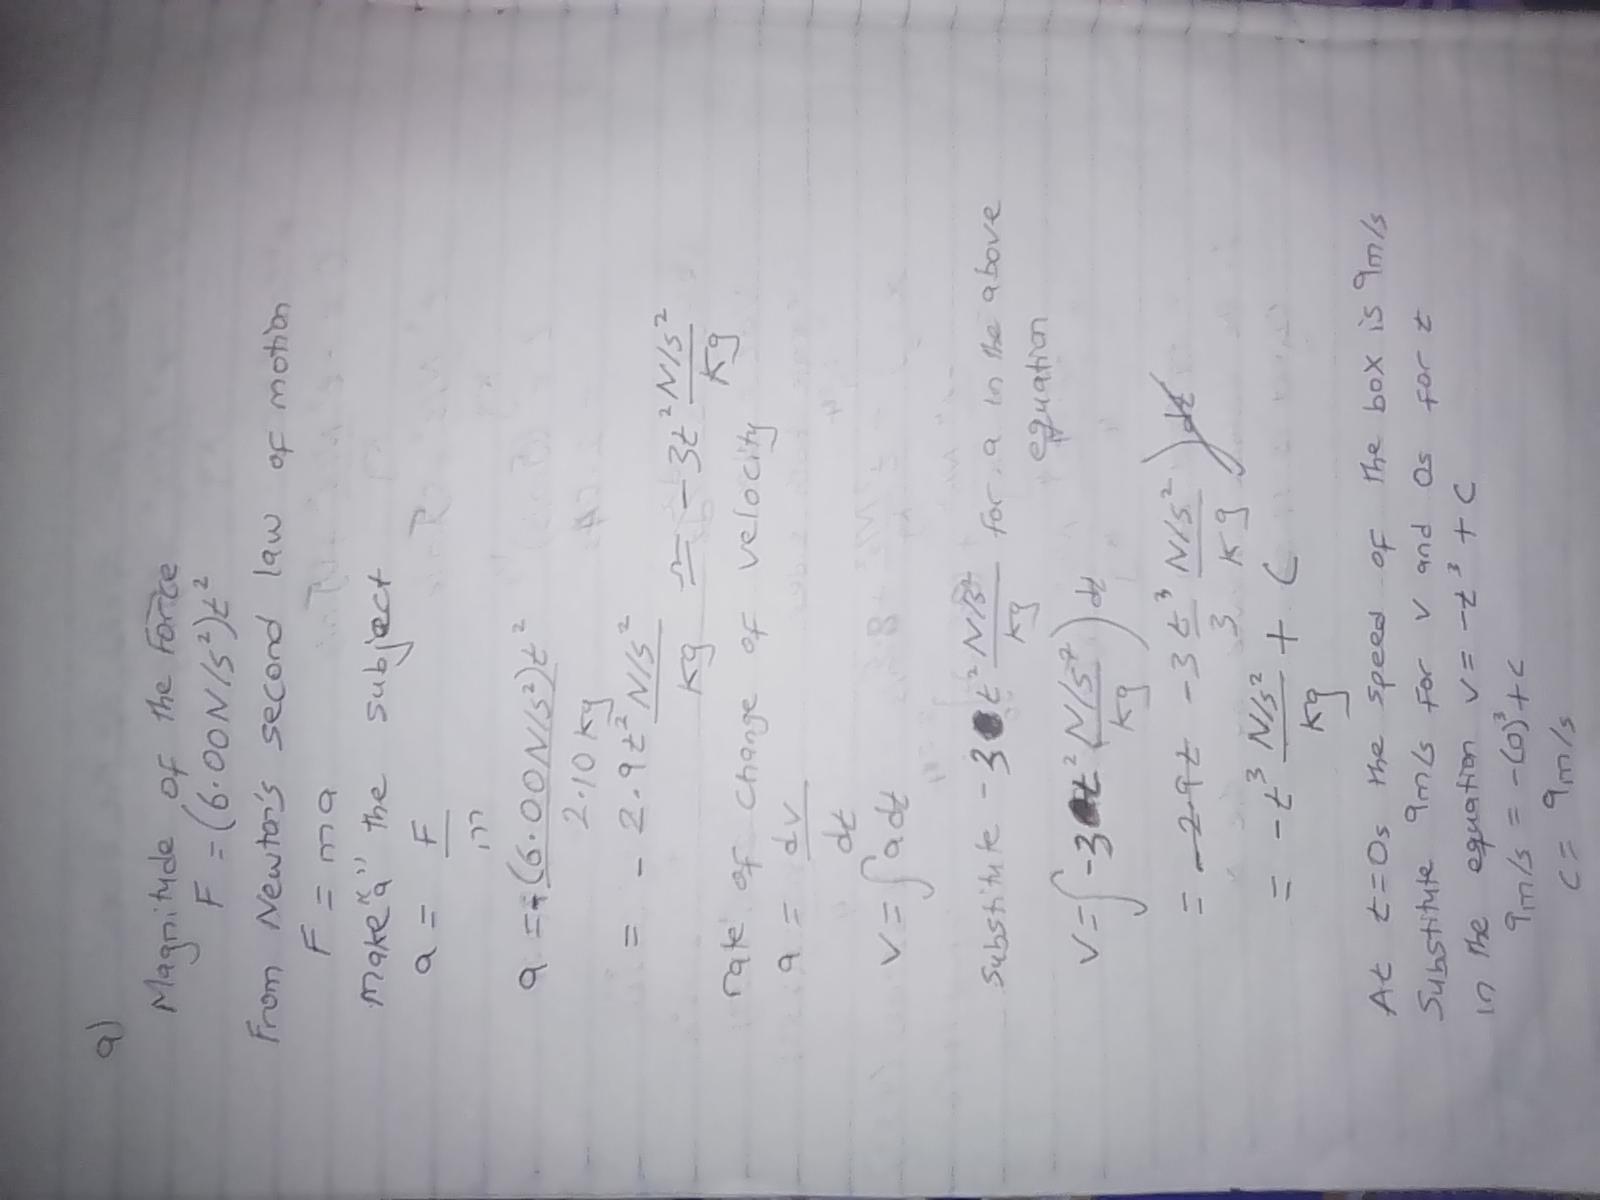 a)
Magnitude of the Force
F = (6.00N/s²)t²
From Newton's second law of motion
F = ma
make "a" the subject
a = F/m
a = -(6.00N/s²)t² / 2.10 kg
= - 2.9t² N/s²/kg ≃ - 3t² N/s²/kg
rate of change of velocity
a = dv/dt
v = ∫adt
Substitute -3t² N/s²/kg for a in the above
equation
v = ∫(-3t² N/s²/kg)dt
= -3 t³/3 N/s²/kg
= - t³ N/s²/kg + C
At t=0s the speed of the box is 9m/s
Substitute 9m/s for v and 0s for t
in the equation v = -t³ + C
9m/s = -(0)³ + C
C = 9m/s